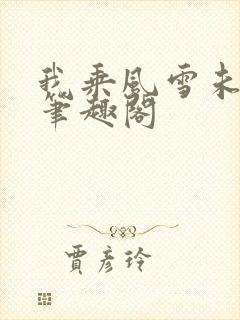 我乘风雪未
笔趣阁
贾彦玲